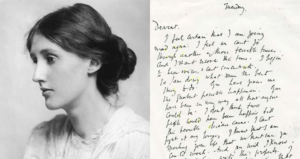 Tuesday.
Dearest,
I feel certain that I am going
mad again: I feel we can't go
through another of those terrible times.
And I shant recover this time. I begin
to hear voices, & cant concentrate.
So I am doing what seems the best
thing to do. You have given me
the greatest possible happiness. You
have been in every way all that anyone
could be. I dont think two
people could have been happier till
this terrible disease came. I cant
fight it any longer, I know that I am
spoiling your life, that without me you
could work. And you will I know.